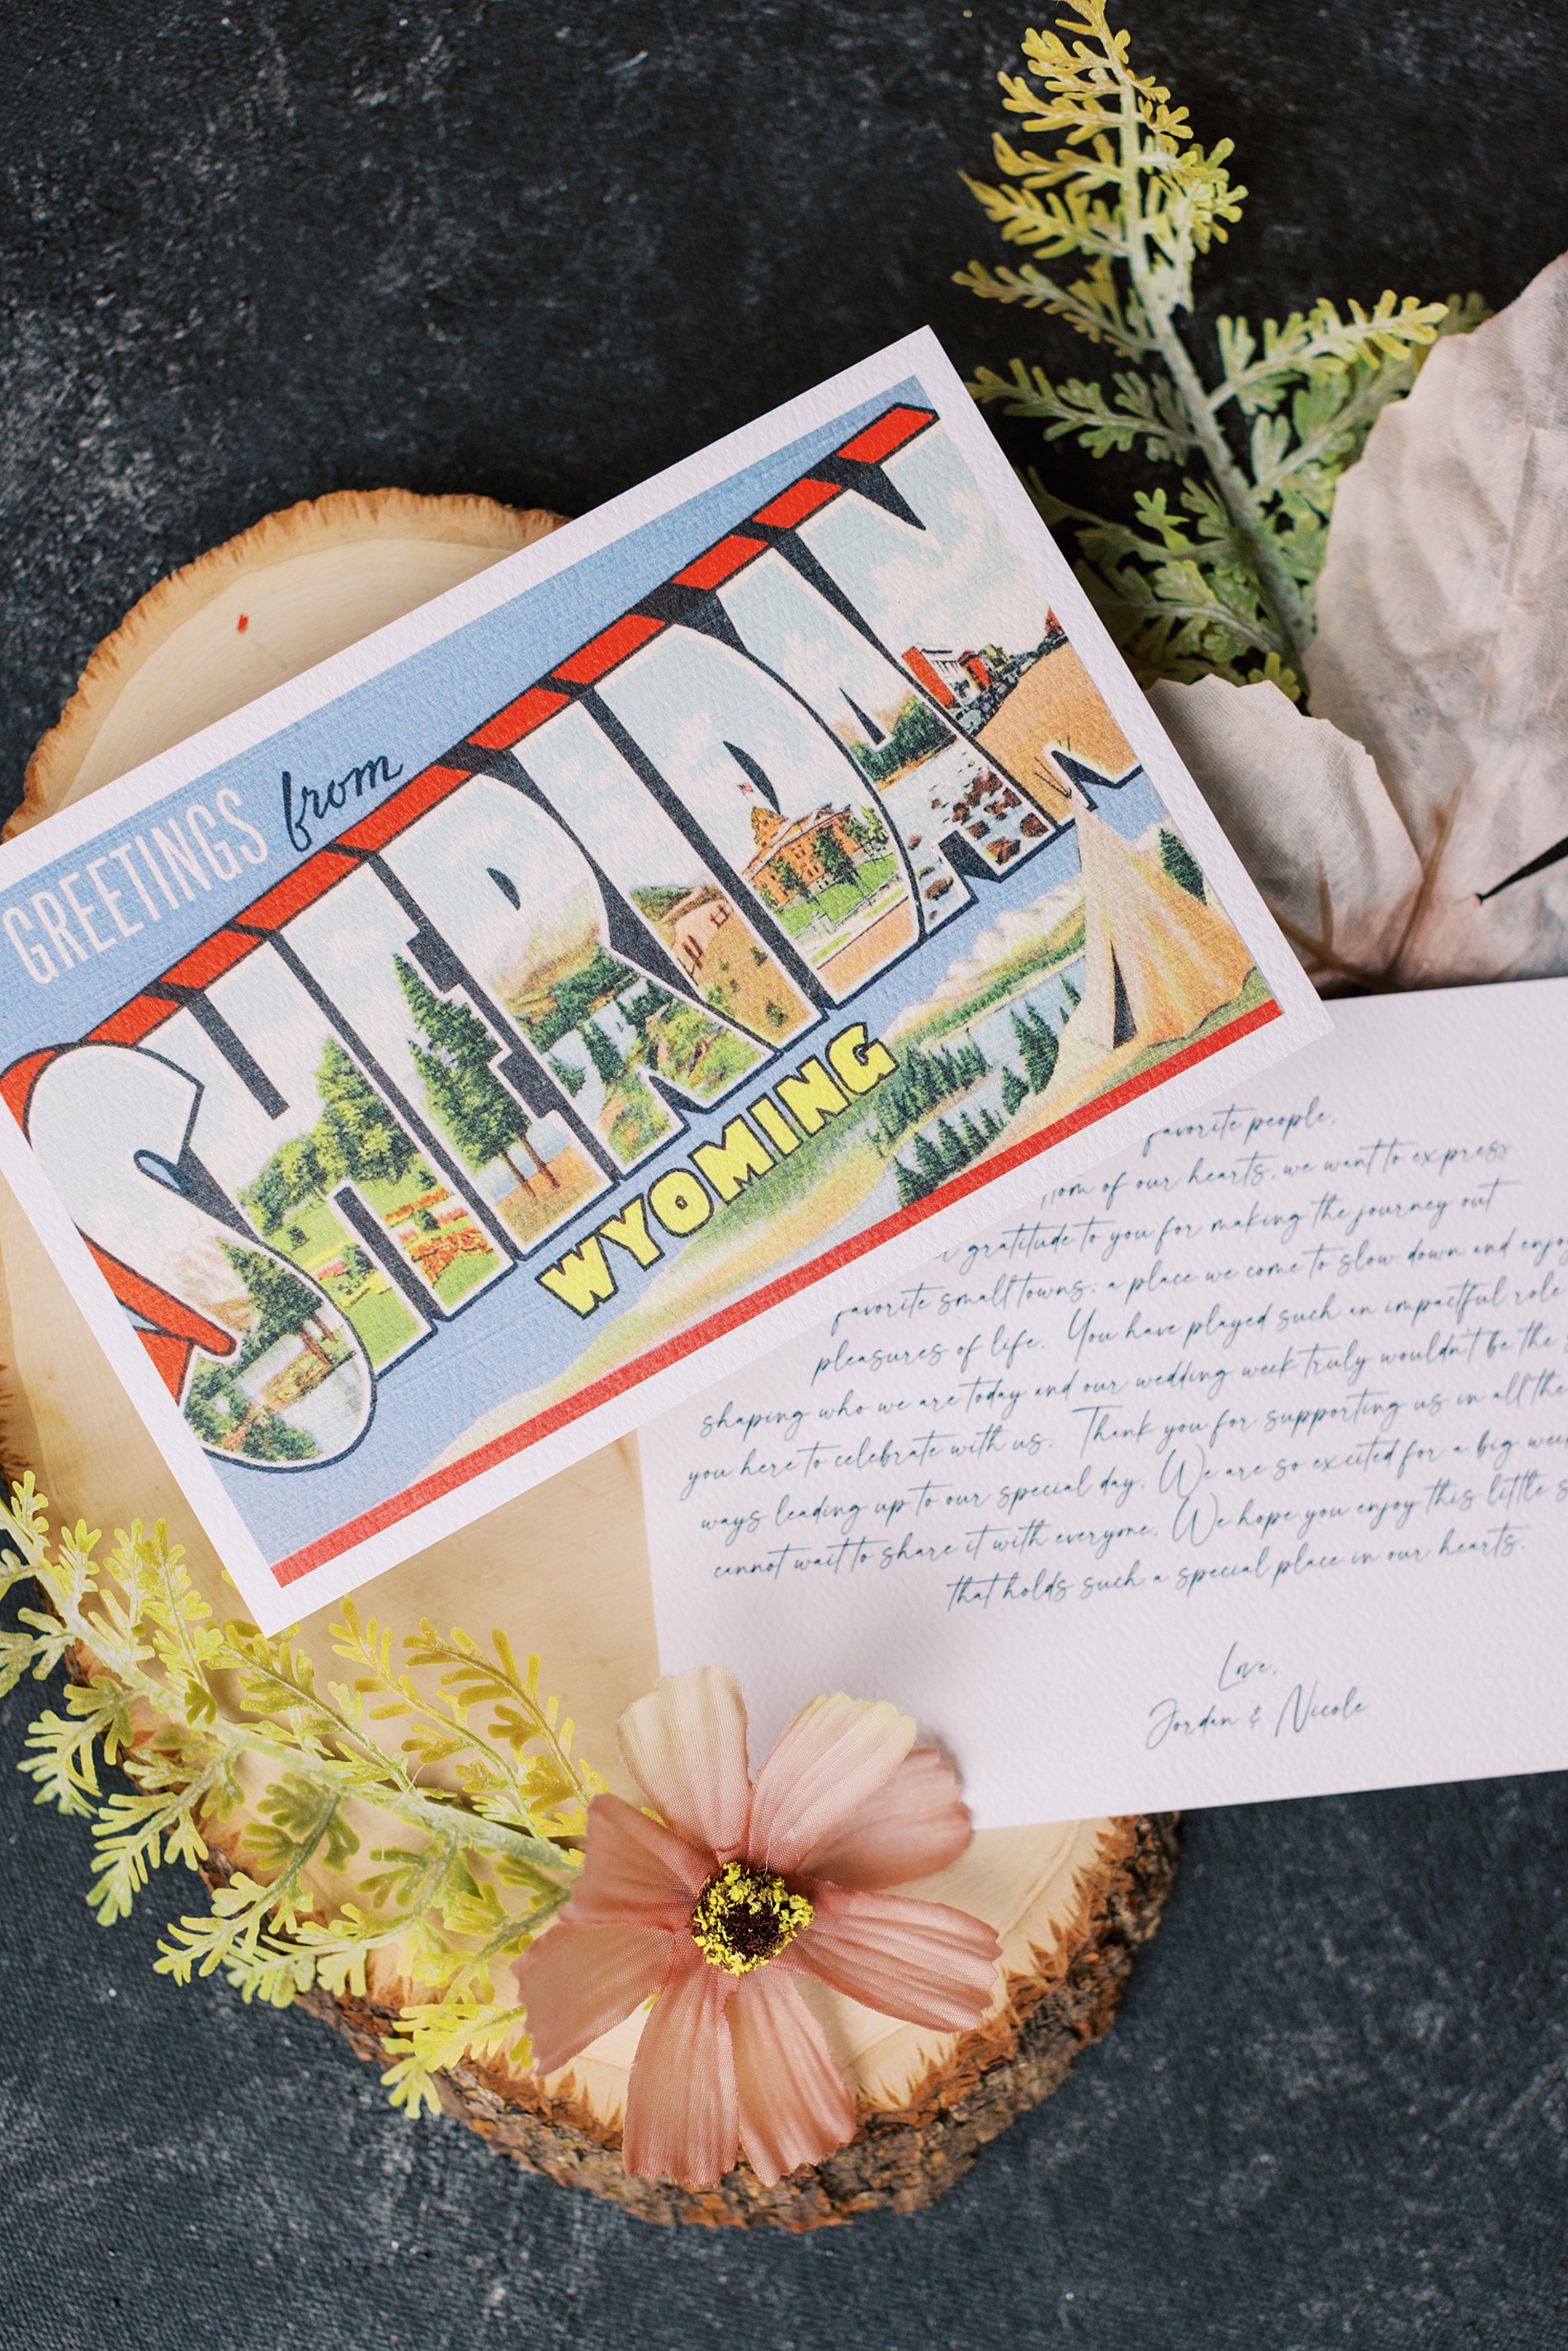 GREETINGS from
SHERIDAN
WYOMING
favorite people,
of our hearts, we want to express
gratitude to you for making the journey out
favorite small towns, a place we come to slow down and
pleasures of life. You have played such an impactful role
shaping who we are today and our wedding week truly wouldn't be the
you here to celebrate with us. Thank you for supporting us in all the
ways leading up to our special day. We are so excited for a big
cannot wait to share it with everyone. We hope you enjoy this little
that holds such a special place in our hearts.
Love,
Jordan & Nicole